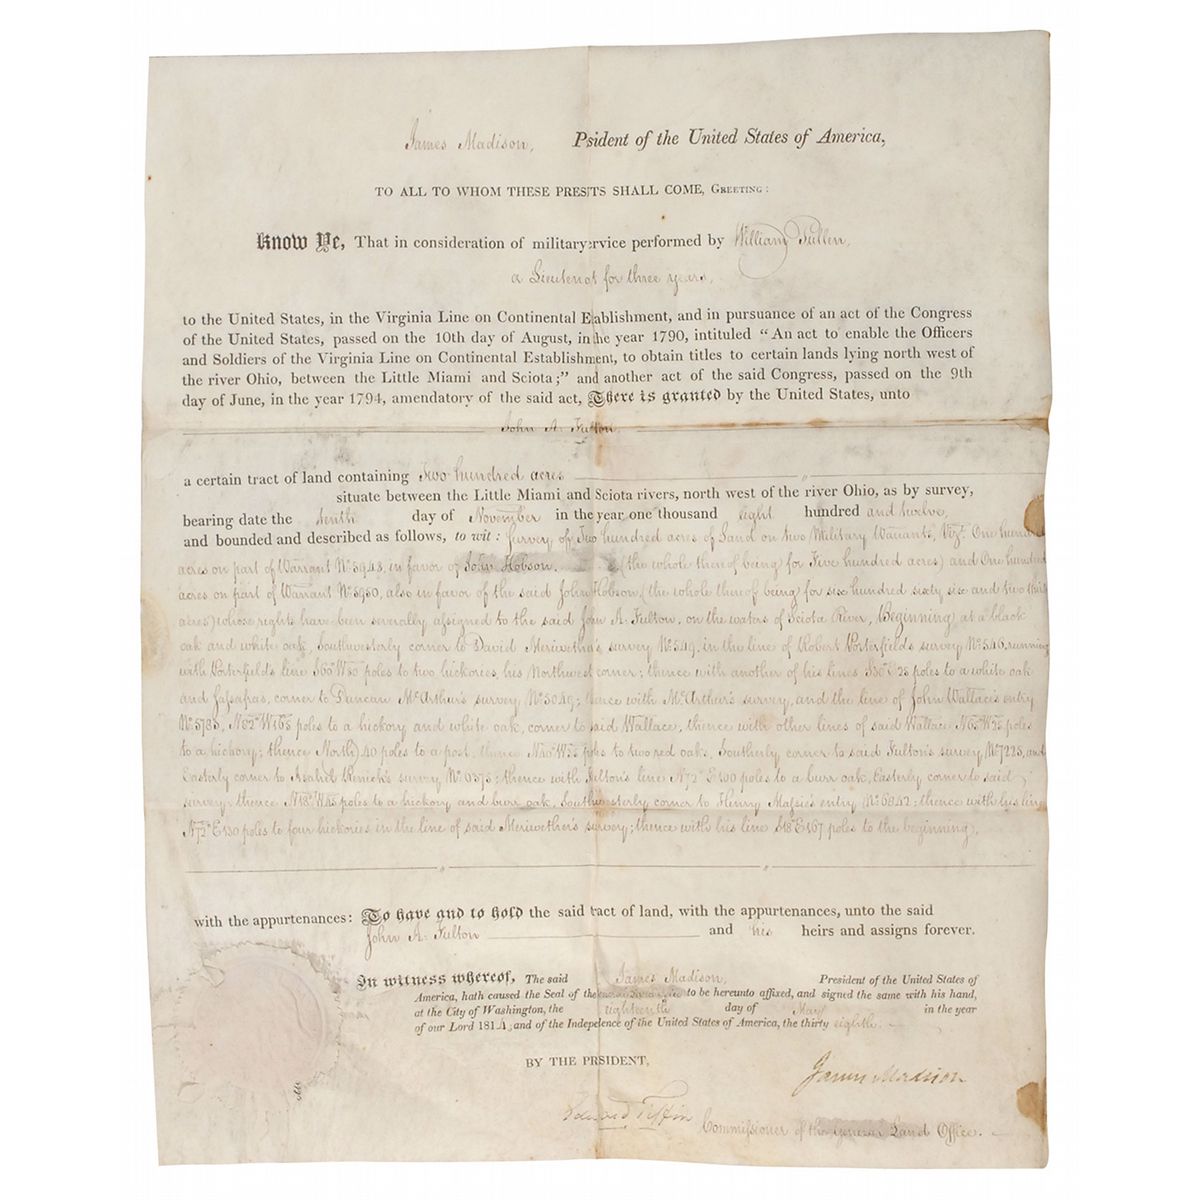 James Madison, Psident of the United States of America,
TO ALL TO WHOM THESE PRESTS SHALL COME, GREETING:
Know Ye, That in consideration of military rvice performed by William Fullen,
a Lieutenat for three years,
to the United States, in the Virginia Line on Continental Eablishment, and in pursuance of an act of the Congress
of the United States, passed on the 10th day of August, in he year 1790, intituled "An act to enable the Officers
and Soldiers of the Virginia Line on Continental Establishment, to obtain titles to certain lands lying north west of
the river Ohio, between the Little Miami and Sciota;" and another act of the said Congress, passed on the 9th
day of June, in the year 1794, amendatory of the said act, There is granted by the United States, unto
John A. Fulton
a certain tract of land containing Two hundred acres
situate between the Little Miami and Sciota rivers, north west of the river Ohio, as by survey,
bearing date the tenth day of November in the year one thousand eight hundred and twelve,
and bounded and described as follows, to wit: Survey of Two hundred acres of Land on two Military Warrants, Vizt. One hundred
acres on part of Warrant No. 5943, in favor of John Hobson. (the whole thereof being for Five hundred acres) and One hundred
acres on part of Warrant No. 5950, also in favor of the said John Hobson, (the whole thereof being for six hundred sixty six and two thirds
acres) whose rights have been severally assigned to the said John A. Fulton, on the waters of Sciota River, Beginning at a black
oak and white oak, Southwesterly corner to David Meriwether's survey No. 549, in the line of Robert Porterfield's survey No. 546 running
with Porterfield's line S60°W50 poles to two hickories, his Northwest corner; thence with another of his lines S30°E25 poles to a white oak
and sassafras, corner to Duncan McArthur's survey, No. 5049; thence with McArthur's survey, and the line of John Wallace's entry
No. 5785, N82°W165 poles to a hickory and white oak, corner to said Wallace, thence with other lines of said Wallace N65°W55 poles
to a hickory; thence North 40 poles to a post, thence N20°W55 poles to two red oaks, Southerly corner to said Fulton's survey, No. 7225, and
Easterly corner to Renick's survey No. 6575: thence with Fulton's line N72°E100 poles to a burr oak, Easterly corner to said
survey; thence N18°W45 poles to a hickory and burr oak, Southwesterly corner to Henry Massie's entry No. 6842; thence with his line
N72°E130 poles to four hickories in the line of said Meriwether's survey; thence with his line S18°E167 poles to the beginning,
with the appurtenances: To have and to hold the said tract of land, with the appurtenances, unto the said
John A. Fulton and his heirs and assigns forever.
In witness whereof, The said James Madison, President of the United States of
America, hath caused the Seal of the to be hereunto affixed, and signed the same with his hand,
at the City of Washington, the eighteenth day of May in the year
of our Lord 1814, and of the Indepence of the United States of America, the thirty eighth.
BY THE PRSIDENT,
James Madison
Edward Tiffin Commissioner of the General Land Office.